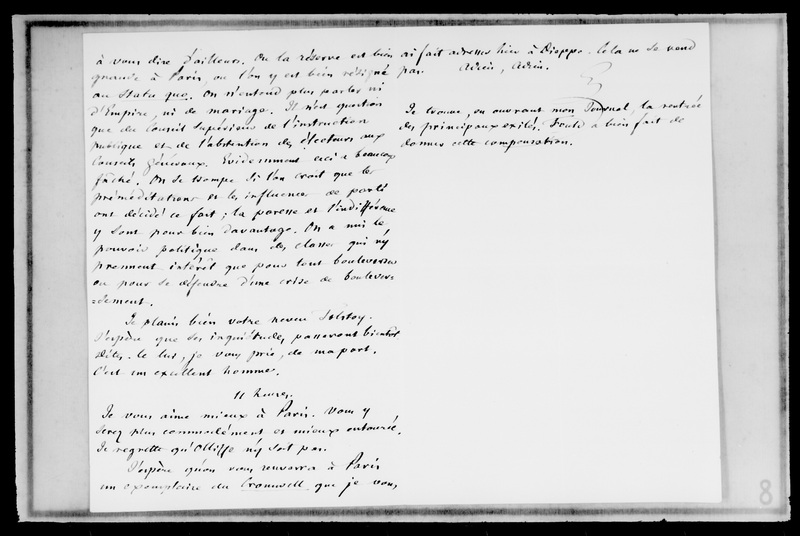 à vous dire d'ailleurs. Ou la réserve est bien
grande à Paris, ou l'on y est bien résigné
au Statu quo. On n'entend plus parler ni
d'Empire, ni de mariage. Il n'est question
que du Conseil Supérieur de l'instruction
publique et de l'abstention des électeurs aux
Conseils généraux. Evidemment ceci a beaucoup
fâché. On se trompe si l'on croit que les
préméditations et les influences de parti
ont décidé ce fait ; la paresse et l'indifférence
y sont pour bien davantage. On a mis le
pouvoir politique dans des classes qui n'y
prennent intérêt que pour tout bouleverser
ou pour se défendre d'une crise de boulever=
=dement.
Je plains bien votre neveu Tolstoy.
J'espère que ses inquiétudes passeront bientôt
Dites-le lui, je vous prie, de ma part.
C'est un excellent homme.
11 heures.
Je vous aime mieux à Paris. Vous y
serez plus commodément et mieux entourée.
Je regrette qu'Olliffe n'y soit pas.
J'espère qu'on vous renverra à Paris
un exemplaire du Cromwell que je vous
ai fait adresser hier à Dieppe. Cela ne se vend
pas. Adieu, Adieu.
Je trouve, en ouvrant mon Journal, la rentrée
des principaux exilés. Fould a bien fait de
donner cette compensation.
8